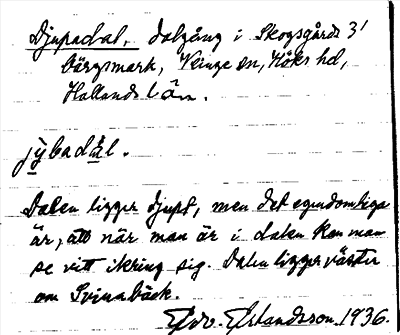 Djupadal, dalgång i Skogsgårds 3
bärgsmark, Veinge sn, Höks hd,
Hallands län.
jỳbadál.
Dalen ligger djupt, men det egendomliga
är, att när man är i dalen kan man
se vitt ikring sig. Dalen ligger väster
om Svinabäck.
Edv. Erlandsson. 1936.